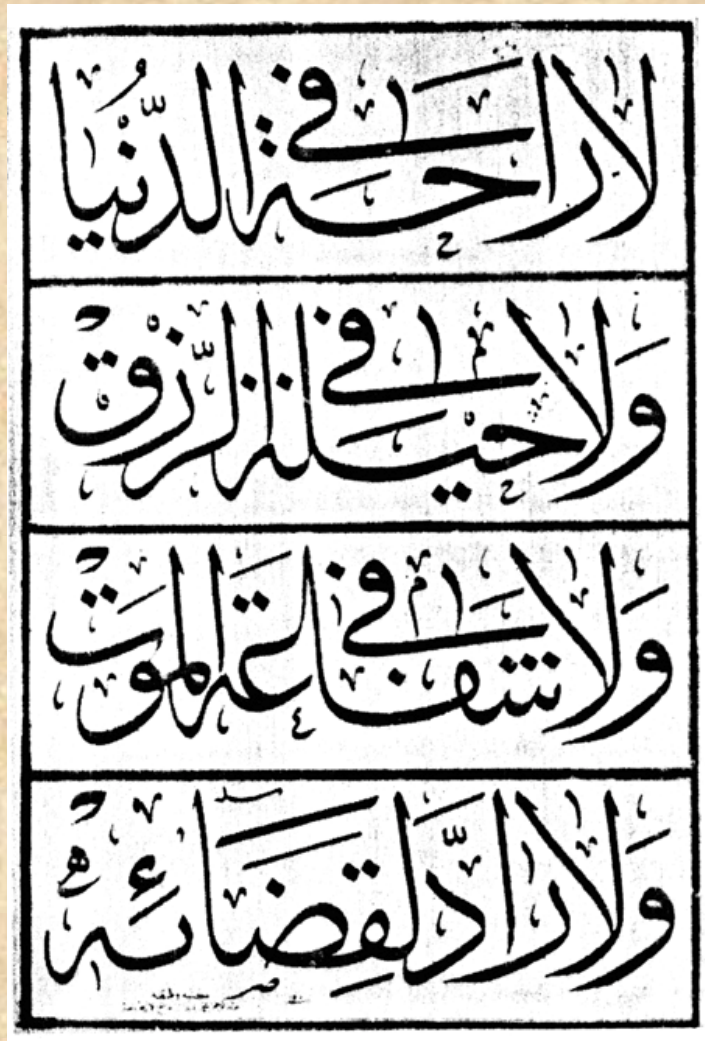 لا راحة في الدُّنْيا
ولا حيلة في الرِّزْقْ
ولا شفاعة في الموت
ولا رادَّ لقِضَائِه